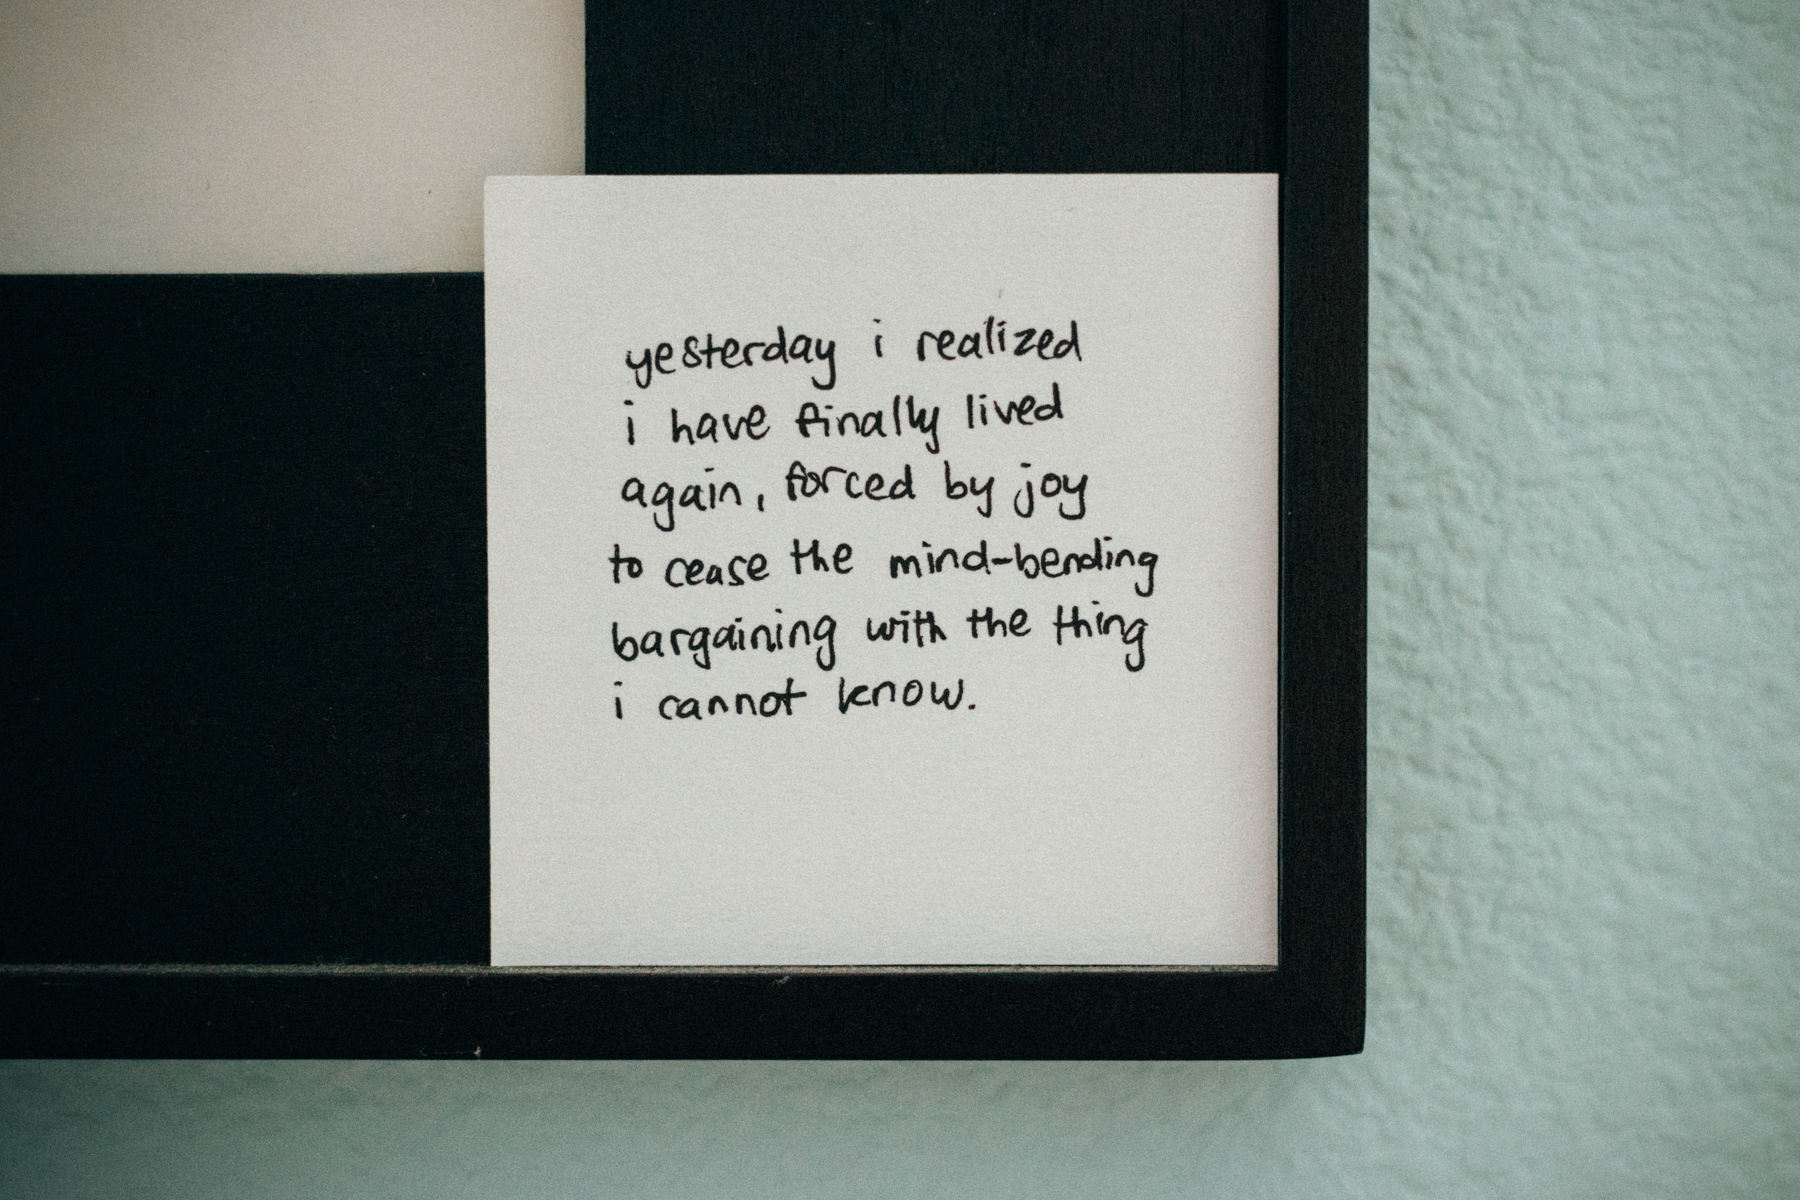 yesterday i realized
i have finally lived
again, forced by joy
to cease the mind-bending
bargaining with the thing
i cannot know.